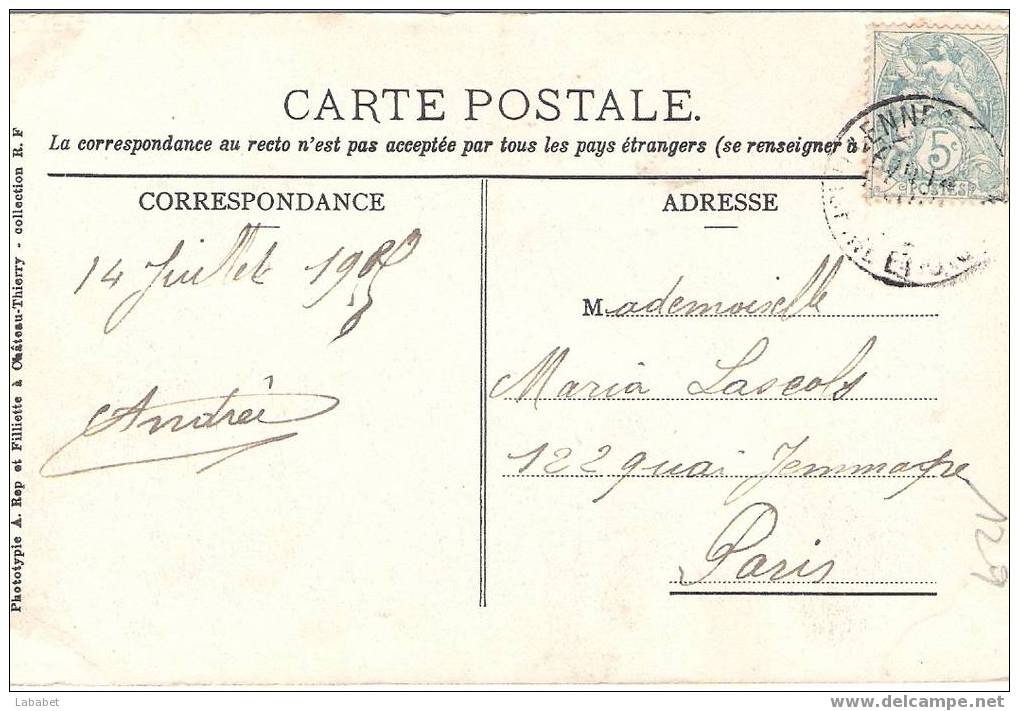 CARTE POSTALE.
La correspondance au recto n'est pas acceptée par tous les pays étrangers (se renseigner à
CORRESPONDANCE
ADRESSE
5c
POSTES
14 Juillet
Mademoiselle
Maria Lascols
122 quai Jemmape
Paris
Andrée
129
Phototypie A. Rep et Filliette à Château-Thierry - collection R. F
Lababet
www.delcampe.net